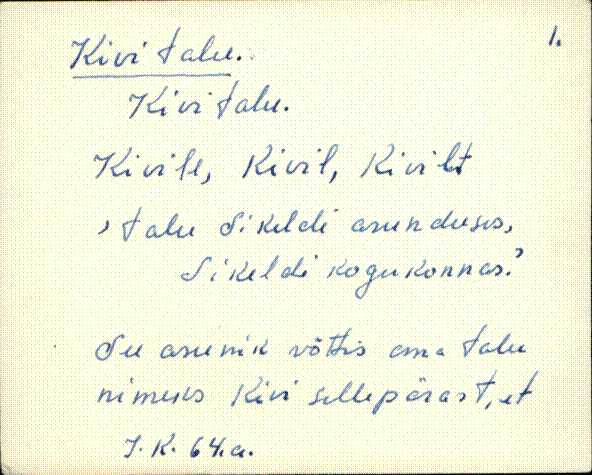 1.
Kivi talu.
Kivi talu.
Kivile, Kivil, Kivilt
, talu Sikeldi asunduses,
Sikeldi kogukonnas.ʼ
See asunik võttis oma talu
nimeks Kivi sellepärast, et
J. K. 64.a.